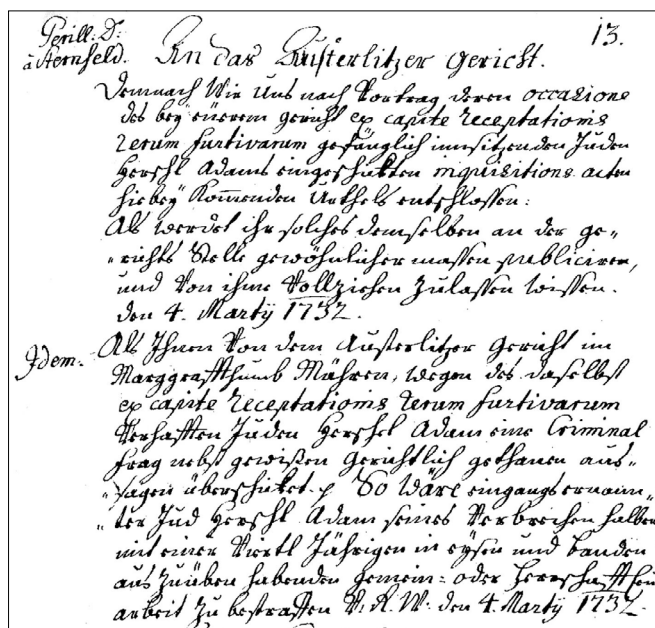 Perill: D:
à Sternfeld.
13.
An das Austerlitzer Gericht.
Demnach Wir Uns nach Vortrag deren occasione
des bey euerem gericht ex capite receptationis
rerum furtivarum gefänglich innsitzenden Juden
Herschl Adams eingeschikten inquisitions acten
hiebey Kommenden Urthels entschlossen:
Als werdet ihr solches demselben an der ge„
„richts Stelle gewöhnlicher massen publiciren,
und Von ihme Vollziehen Zulassen wissen.
den 4. Martÿ 1732.
Idem.
Als Ihnen Von dem Austerlitzer Gericht im
Marggraffthumb Mähren, wegen des daselbst
ex capite receptationis rerum furtivarum
Verhafften Juden Herschl Adam eine Criminal
frag nebst gewißen Gerichtlich gethanen aus„
„sagen überschiket p So wäre eingangs ernann„
„ter Jud Herschl Adam seines Verbrechen halber
mit einer Viertl Jährigen in eysen und banden
aus Zuüben habenden gemein: oder herrschafftlichen
arbeit Zu bestraffen V: R: W: den 4. Martÿ 1732.